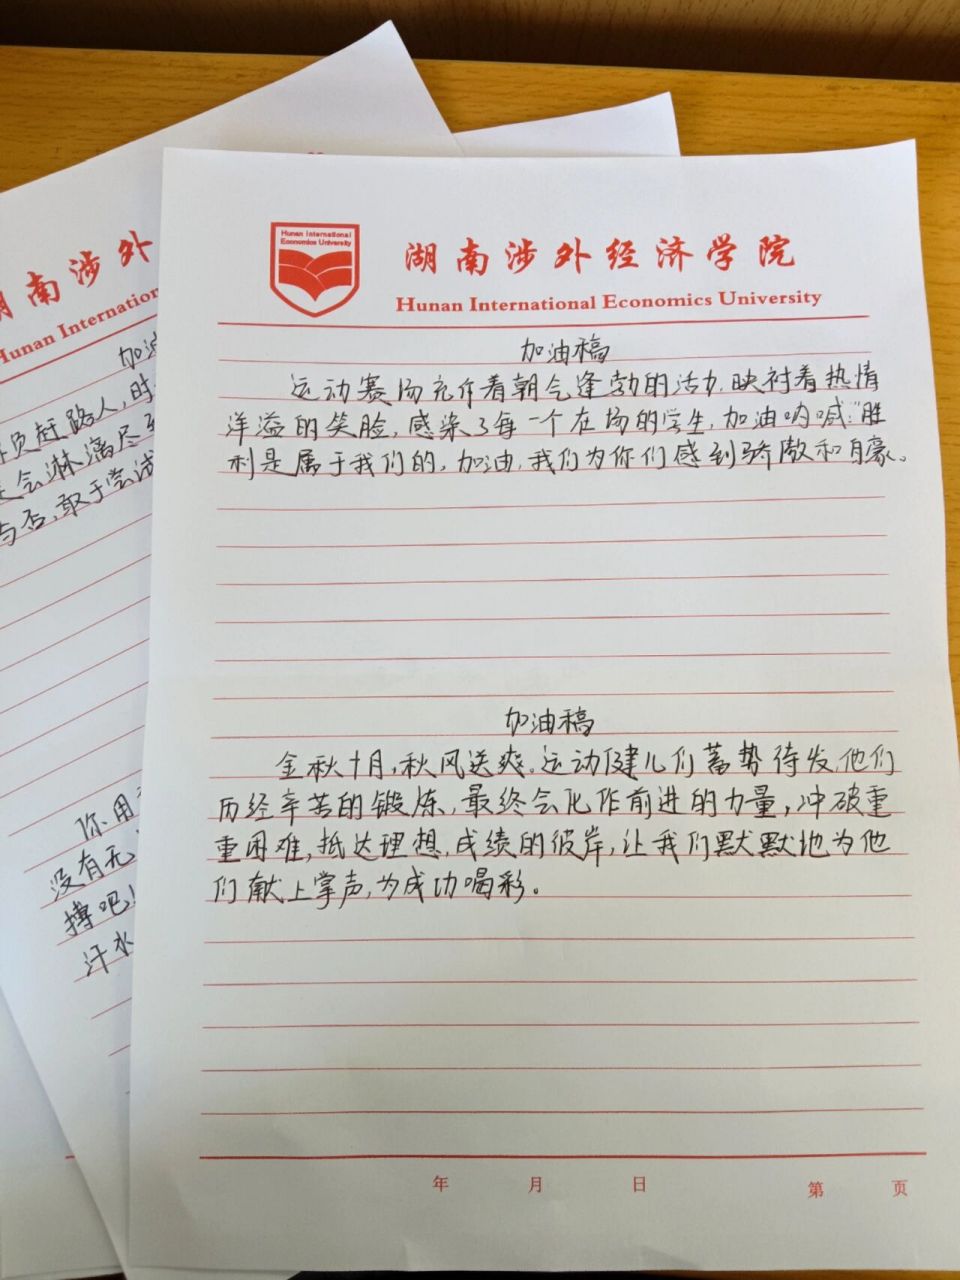 Hunan International
Economics University
湖南涉外经济学院
Hunan International Economics University
加油稿
运动赛场充斥着朝气蓬勃的活力,映衬着热情
洋溢的笑脸,感染了每一个在场的学生,加油呐喊:"胜
利是属于我们的,加油,我们为你们感到骄傲和自豪。
加油稿
金秋十月,秋风送爽。运动健儿们蓄势待发,他们
历经辛苦的锻炼,最终会化作前进的力量,冲破重
重困难,抵达理想,成绩的彼岸,让我们默默地为他
们献上掌声,为成功喝彩。
年 月 日
第 页
南涉外
Hunan Internation
加油
员赶路人,时
会淋漓尽
与否,敢于尝试
你用
没有无
搏吧!
汗水